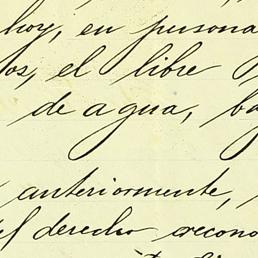 hoy, en persona
os, el libre
de agua, ba
anteriormente,
el derecho recono